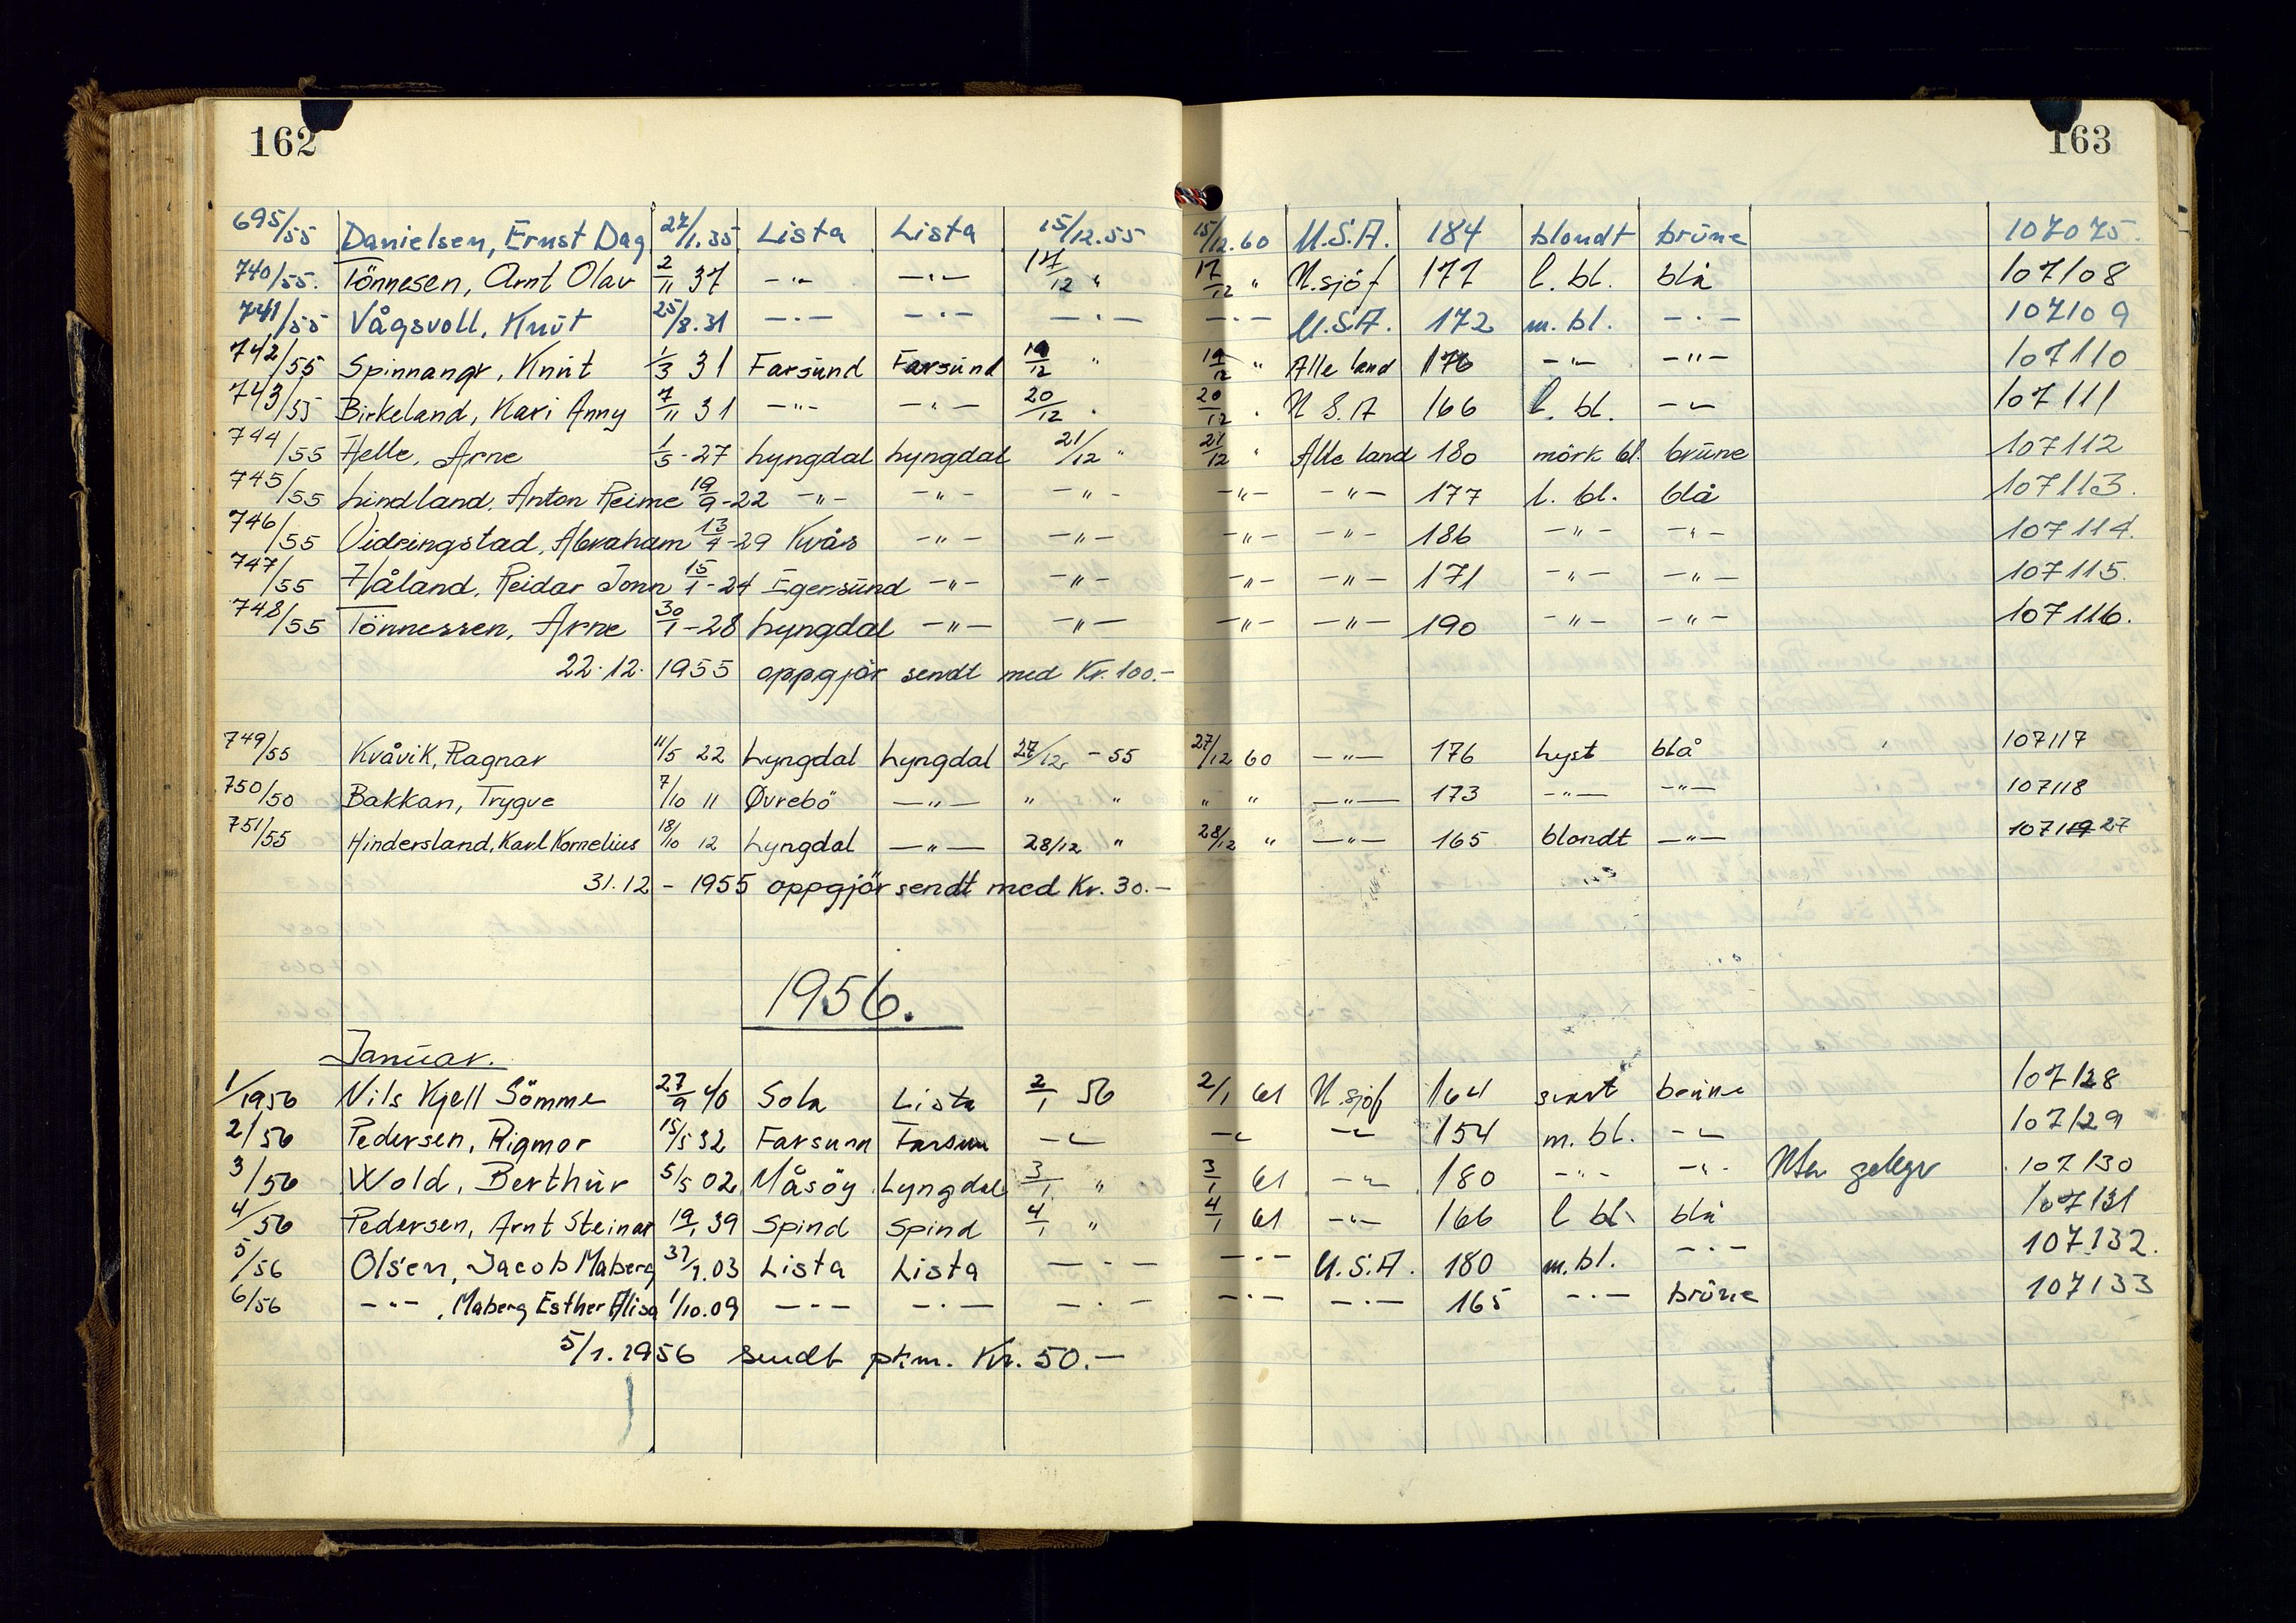 162
163
695/55 Danielsen, Ernst Dag 27/1.35 Lista Lista 15/12.55 15/12.60 U.S.A. 184 blondt brune 107075.
740/55. Tönnesen, Arnt Olav 2/11 37 -"- -"- 17/12 " 17/12 " U.sjöf 177 l. bl. blå 107108
741/55 Vågsvoll, Knut 25/8.31 -"- -"- -"- -"- U.S.A. 172 m. bl. -"- 107109
742/55 Spinnangr, Knut 1/3 31 Farsund Farsund 19/12 " 19/12 " Alle land 176 -"- -"- 107110
743/55 Birkeland, Kari Anny 7/11 31 -"- -"- 20/12 " 20/12 " U.S.A 166 l. bl. -"- 107111
744/55 Helle, Arne 1/5-27 Lyngdal Lyngdal 21/12 " 21/12 " Alle land 180 mörk bl. brune 107112
745/55 Lindland, Anton Reime 19/9-22 -"- -"- -"- -"- -"- 177 l. bl. blå 107113.
746/55 Vidringstad, Abraham 13/4-29 Kvås -"- -"- -"- -"- 186 -"- -"- 107114.
747/55 Håland, Reidar Jonn 15/1-24 Egersund -"- -"- -"- -"- 171 -"- -"- 107115.
748/55 Tönnessen, Arne 30/1-28 Lyngdal -"- -"- -"- -"- 190 -"- -"- 107116.
22.12. 1955 oppgjör sendt med Kr. 100.-
749/55 Kvåvik, Ragnar 11/5 22 Lyngdal Lyngdal 27/12 - 55 27/12 60 -"- 176 Lyst blå 107117
750/50 Bakkan, Trygve 7/10 11 Øvrebö -"- " " " " -"- 173 -"- -"- 107118
751/55 Hindersland, Karl Kornelius 18/10 12 Lyngdal -"- 28/12 " 28/12 " -"- 165 blondt -"- 10711927
31.12 - 1955 oppgjör sendt med Kr. 30.-
1956.
Januar.
1/1956 Nils Kjell Sömme 27/9 40 Sola Lista 2/1 56 2/1 61 U.sjöf 164 svart brune 107128
2/56 Pedersen, Rigmor 15/5 32 Farsunn Farsun -"- -"- -"- 154 m. bl. -"- 107129
3/56 Wold, Berthur 5/5 02 Måsöy Lyngdal 3/1 " 3/1 61 -"- 180 -"- -"- 107130
4/56 Pedersen, Arnt Steinar 19/1 39 Spind Spind 4/1 " 4/1 61 -"- 166 l bl. blå 107131
5/56 Olsen, Jacob Maberg 31/1.03 Lista Lista -"- -"- U.S.A. 180 m. bl. -"- 107132.
6/56 -"-, Maberg Esther Alisa 1/10.09 -"- -"- -"- -"- -"- 165 -"- brune 107133
5/1.1956 sendt pkm. Kr. 50.-